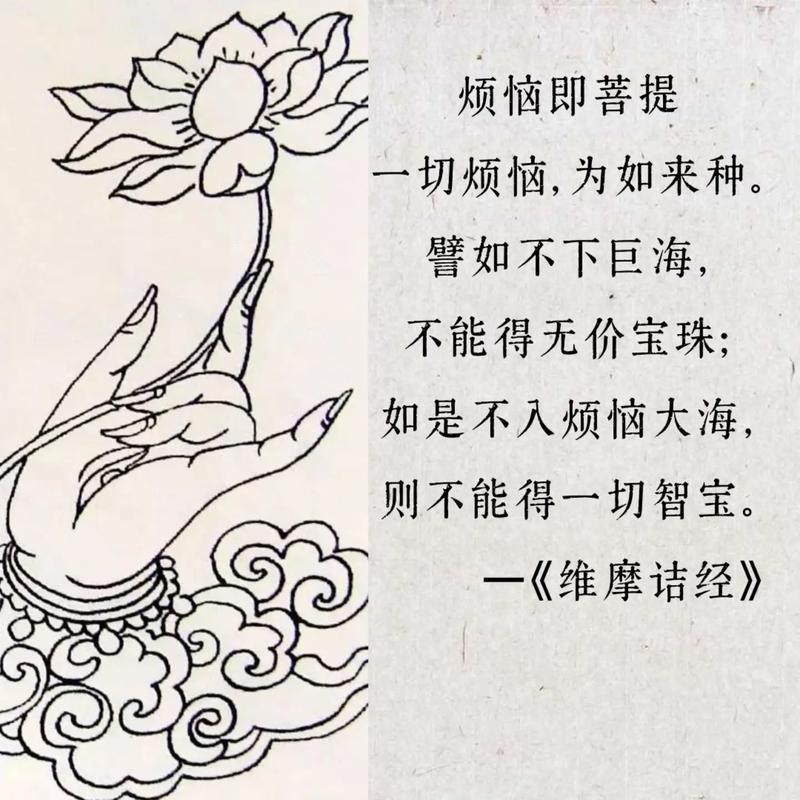 烦恼即菩提
一切烦恼,为如来种。
譬如不下巨海,
不能得无价宝珠;
如是不入烦恼大海,
则不能得一切智宝。
—《维摩诘经》